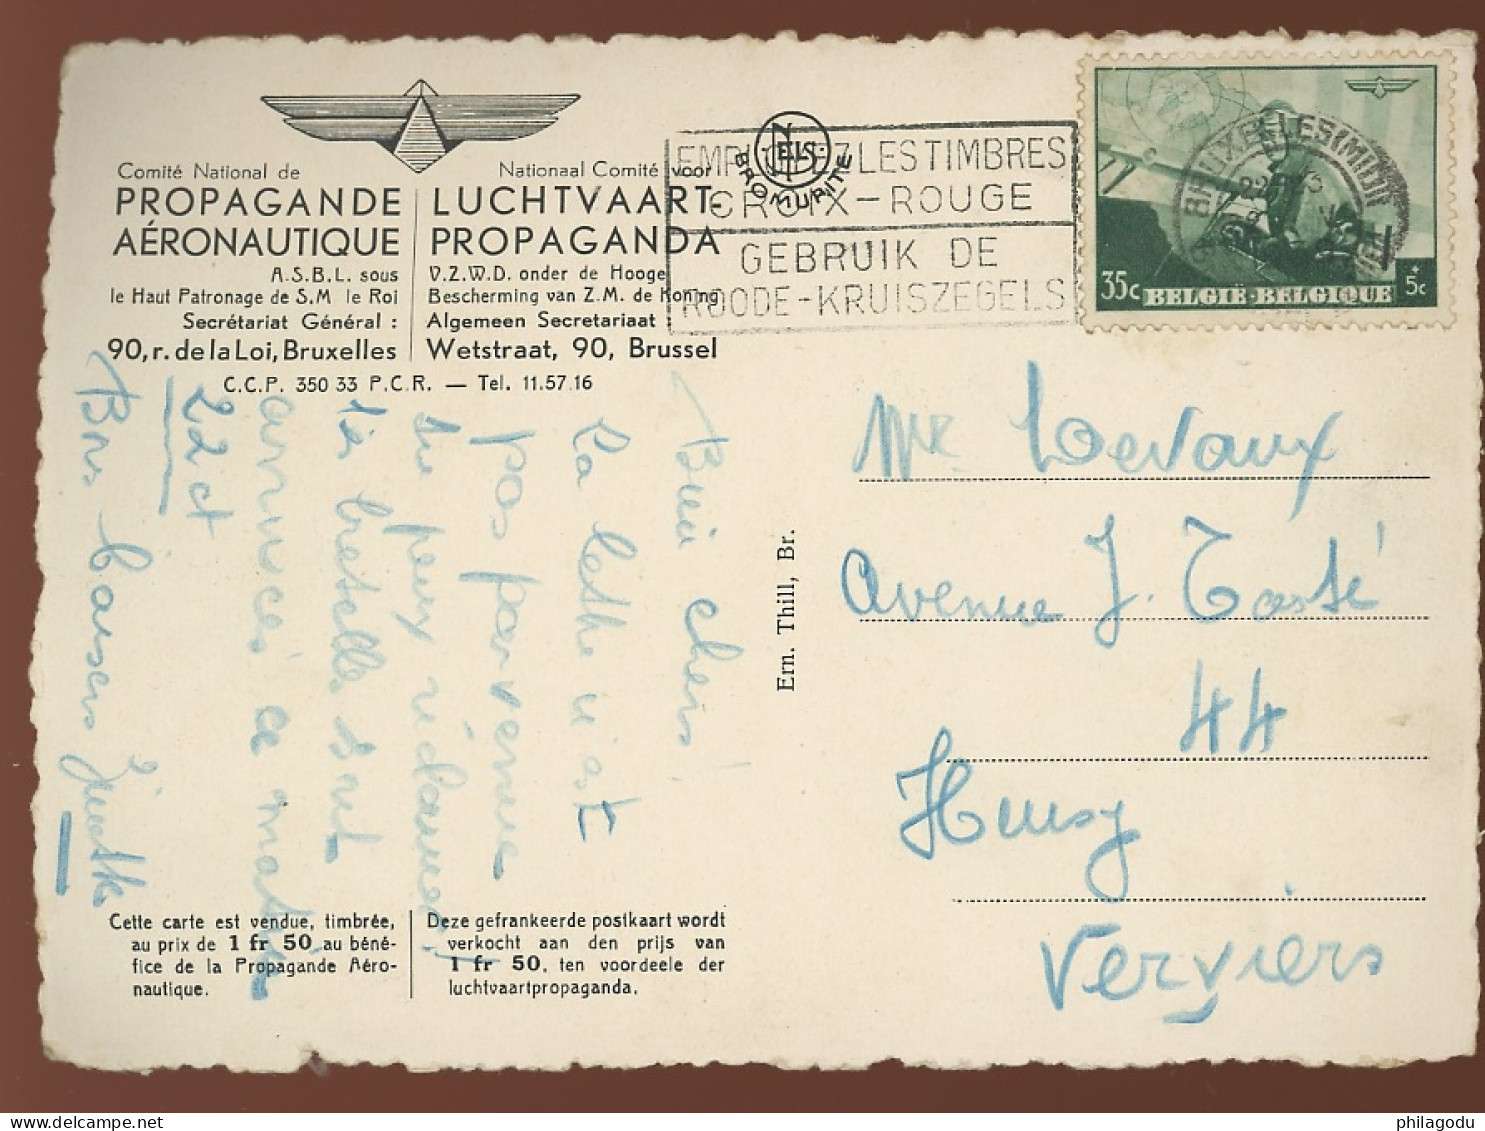 Comité National de
PROPAGANDE
AÉRONAUTIQUE
A.S.B.L. sous
le Haut Patronage de S.M le Roi
Secrétariat Général :
90, r. de la Loi, Bruxelles
Nationaal Comité voor
LUCHTVAART-
PROPAGANDA
V.Z.W.D. onder de Hooge
Bescherming van Z.M. de Koning
Algemeen Secretariaat :
Wetstraat, 90, Brussel
C.C.P. 350 33 P.C.R. — Tel. 11.57.16
NELS
BROMURITE
EMPLOYEZ LES TIMBRES
CROIX-ROUGE
GEBRUIK DE
ROODE-KRUISZEGELS
BRUXELLES (MIDI)
35c BELGIË-BELGIQUE + 5c
Bien chers,
La lettre n'est
pas parvenue
su peux réclamer,
bretelles sont
arrivées ce matin
22 ct
Bons baisers
Mr Devaux
Avenue J. Tasté
44
Heusy
Verviers
Ern. Thill, Br.
Cette carte est vendue, timbrée,
au prix de 1 fr 50 au béné-
fice de la Propagande Aéro-
nautique.
Deze gefrankeerde postkaart wordt
verkocht aan den prijs van
1 fr 50, ten voordeele der
luchtvaartpropaganda.
philagodu